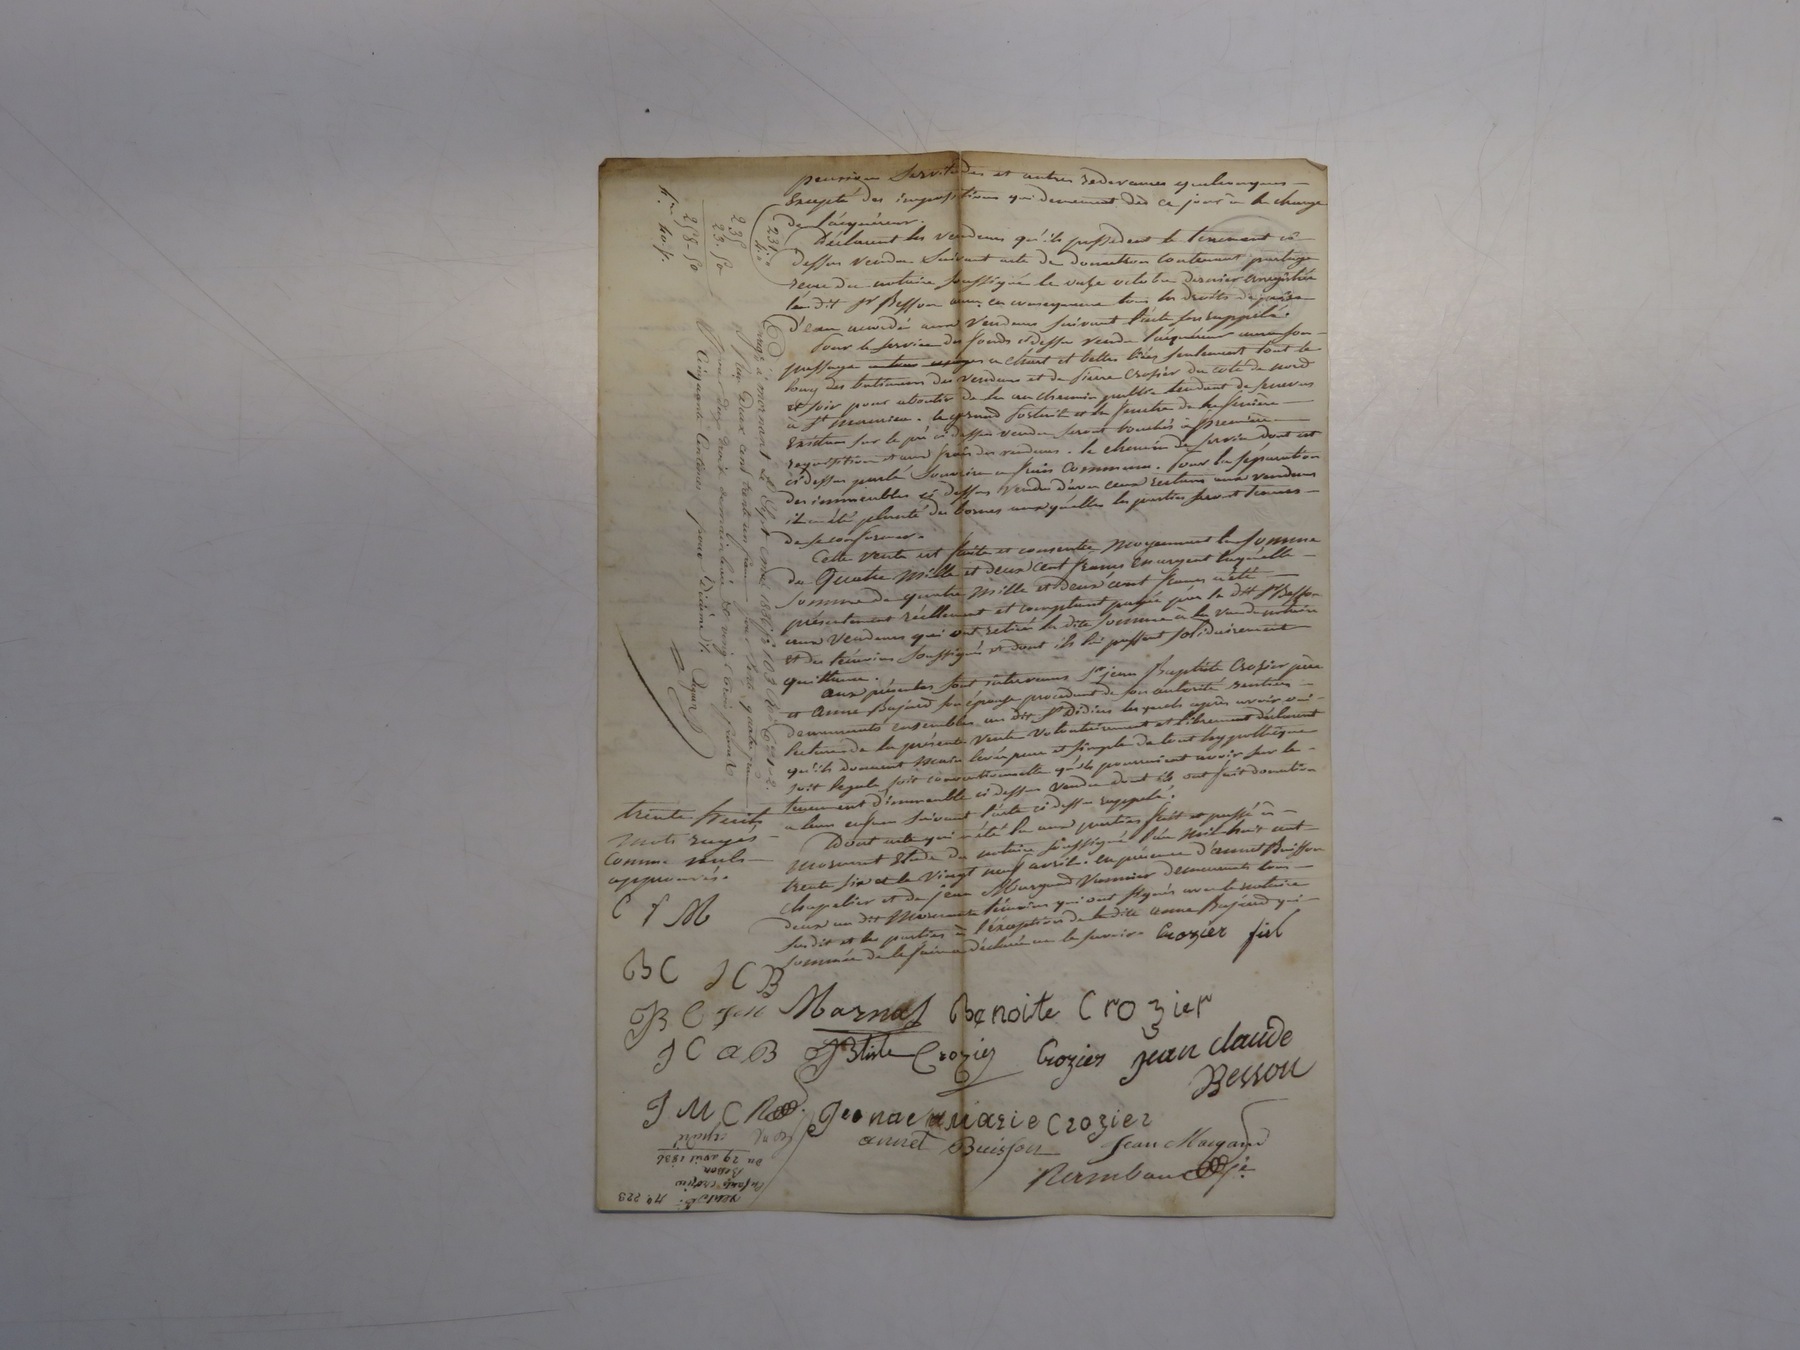 pensions Servitudes et autres redevances quelconques
Excepté des impositions qui demeurent dès ce jour à la charge
de l'acquéreur.
Déclarent les vendeurs qu'ils possèdent le tenement ci-
dessus vendu suivant acte de donation contenant partage
reçu du notaire soussigné le octobre dernier enregistré
le dit Sr Besson aura en conséquence tous les droits de prise
d'eau accordés aux vendeurs suivant l'acte sus rappelé.
Pour le service des fonds ci dessus vendu l'acquéreur aura son
passage a chart et bettes liées seulement tout le
long des batimens des vendeurs et de Pierre Crozier du coté de nord
et soir pour aboutir de la au chemin public tendant de
à St Maurice. le grand et la fenetre de la fenière
Existens sur le pré ci dessus vendu seront bouchés à première
requisition et aux frais des vendeurs. le chemin de service dont est
ci dessus parlé s'ouvrira a frais communs. Pour la séparation
des immeubles ci dessus vendus d'avec ceux restans aux vendeurs
il a été planté des bornes auxquelles les parties seront tenues
de se conformer.
Cette vente est faite et consentie moyennant la somme
de Quatre mille et deux cent francs en argent laquelle
somme de quatre mille et deux cent francs a été
présentement réellement et comptant payée par le dit Sr Besson
aux vendeurs qui ont retiré la dite somme à la vue du notaire
et des témoins soussignés et dont ils lui passent solidairement
quittance.
Aux présentes sont intervenus Sr jean Baptiste Crozier père
et Anne Bajard son épouse procédant de son autorité rentiers
demeurants ensembles au dit St Didier lesquels après avoir oui
lecture de la présente vente volontairement et librement déclarent
qu'ils donnent main levée pure et simple de tout hypothèque
soit légale soit conventionnelle qu'ils pourraient avoir sur le
tenement d'immeuble ci dessus vendu dont ils ont fait donation
a leurs enfans suivant l'acte ci dessus rappelé.
Dont acte qui a été lu aux parties fait et passé à
Mornant Etude du notaire soussigné l'an mil huit cent
trente six et le vingt neuf avril. en présence d'annet Buisson
chapelier et de jean Margand Vannier demeurants tous
deux au dit Mornant témoins qui ont signés avec le notaire
susdit et les parties à l'exception de la dite anne Bajard qui
sommée de le faire a déclaré ne le savoir. Crozier fils
Marnas Benoite Crozier
JBtiste Crozier Crozier jean claude
Besson
Jeonne Marie Crozier
annet Buisson Jean Margand
trente huit
mots rayés
comme nuls
approuvés.
C f M
BC JCB
JB C
J C a B
J M C
231
235
23. 50
258-50
Enregé à mornant le Sept mai 1836
Reçu Deux cent trente un francs
cinquante centimes pour Dixième.
Nº 223
Enfants Crozier
Besson
Du 29 avril 1836